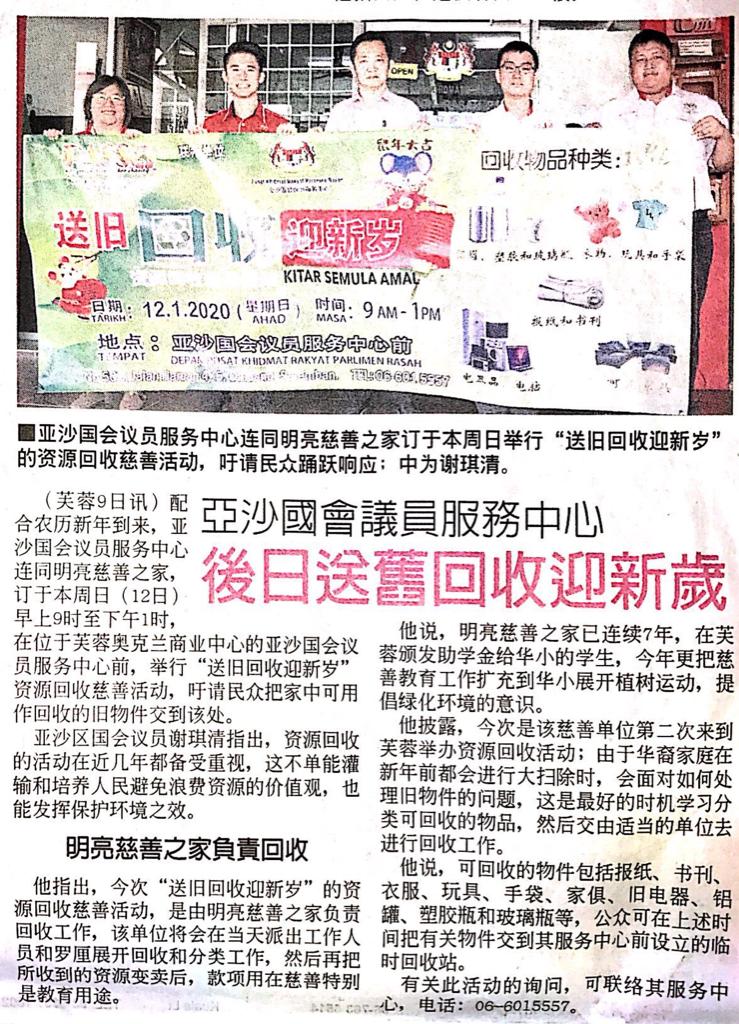 OPEN
鼠年大吉
回收物品种类：
送旧回收迎新岁
KITAR SEMULA AMAL
塑胶和玻璃瓶、衣物、玩具和手袋
报纸和书刊
电器品
电脑
日期：12.1.2020（星期日） 时间：9 AM - 1PM
TARIKH: AHAD MASA:
地点：亚沙国会议员服务中心前
TEMPAT DEPAN PUSAT KHIDMAT RAKYAT PARLIMEN RASAH
TEL:06-6015557
■亚沙国会议员服务中心连同明亮慈善之家订于本周日举行“送旧回收迎新岁”
的资源回收慈善活动，吁请民众踊跃响应；中为谢琪清。
亞沙國會議員服務中心
後日送舊回收迎新歲
（芙蓉9日讯）配
合农历新年到来，亚
沙国会议员服务中心
连同明亮慈善之家，
订于本周日（12日）
早上9时至下午1时，
在位于芙蓉奥克兰商业中心的亚沙国会议
员服务中心前，举行“送旧回收迎新岁”
资源回收慈善活动，吁请民众把家中可用
作回收的旧物件交到该处。
亚沙区国会议员谢琪清指出，资源回收
的活动在近几年都备受重视，这不单能灌
输和培养人民避免浪费资源的价值观，也
能发挥保护环境之效。
明亮慈善之家負責回收
他指出，今次“送旧回收迎新岁”的资
源回收慈善活动，是由明亮慈善之家负责
回收工作，该单位将会在当天派出工作人
员和罗厘展开回收和分类工作，然后再把
所收到的资源变卖后，款项用在慈善特别
是教育用途。
他说，明亮慈善之家已连续7年，在芙
蓉颁发助学金给华小的学生，今年更把慈
善教育工作扩充到华小展开植树运动，提
倡绿化环境的意识。
他披露，今次是该慈善单位第二次来到
芙蓉举办资源回收活动；由于华裔家庭在
新年前都会进行大扫除时，会面对如何处
理旧物件的问题，这是最好的时机学习分
类可回收的物品，然后交由适当的单位去
进行回收工作。
他说，可回收的物件包括报纸、书刊、
衣服、玩具、手袋、家俱、旧电器、铝
罐、塑胶瓶和玻璃瓶等，公众可在上述时
间把有关物件交到其服务中心前设立的临
时回收站。
有关此活动的询问，可联络其服务中
心，电话：06-6015557。